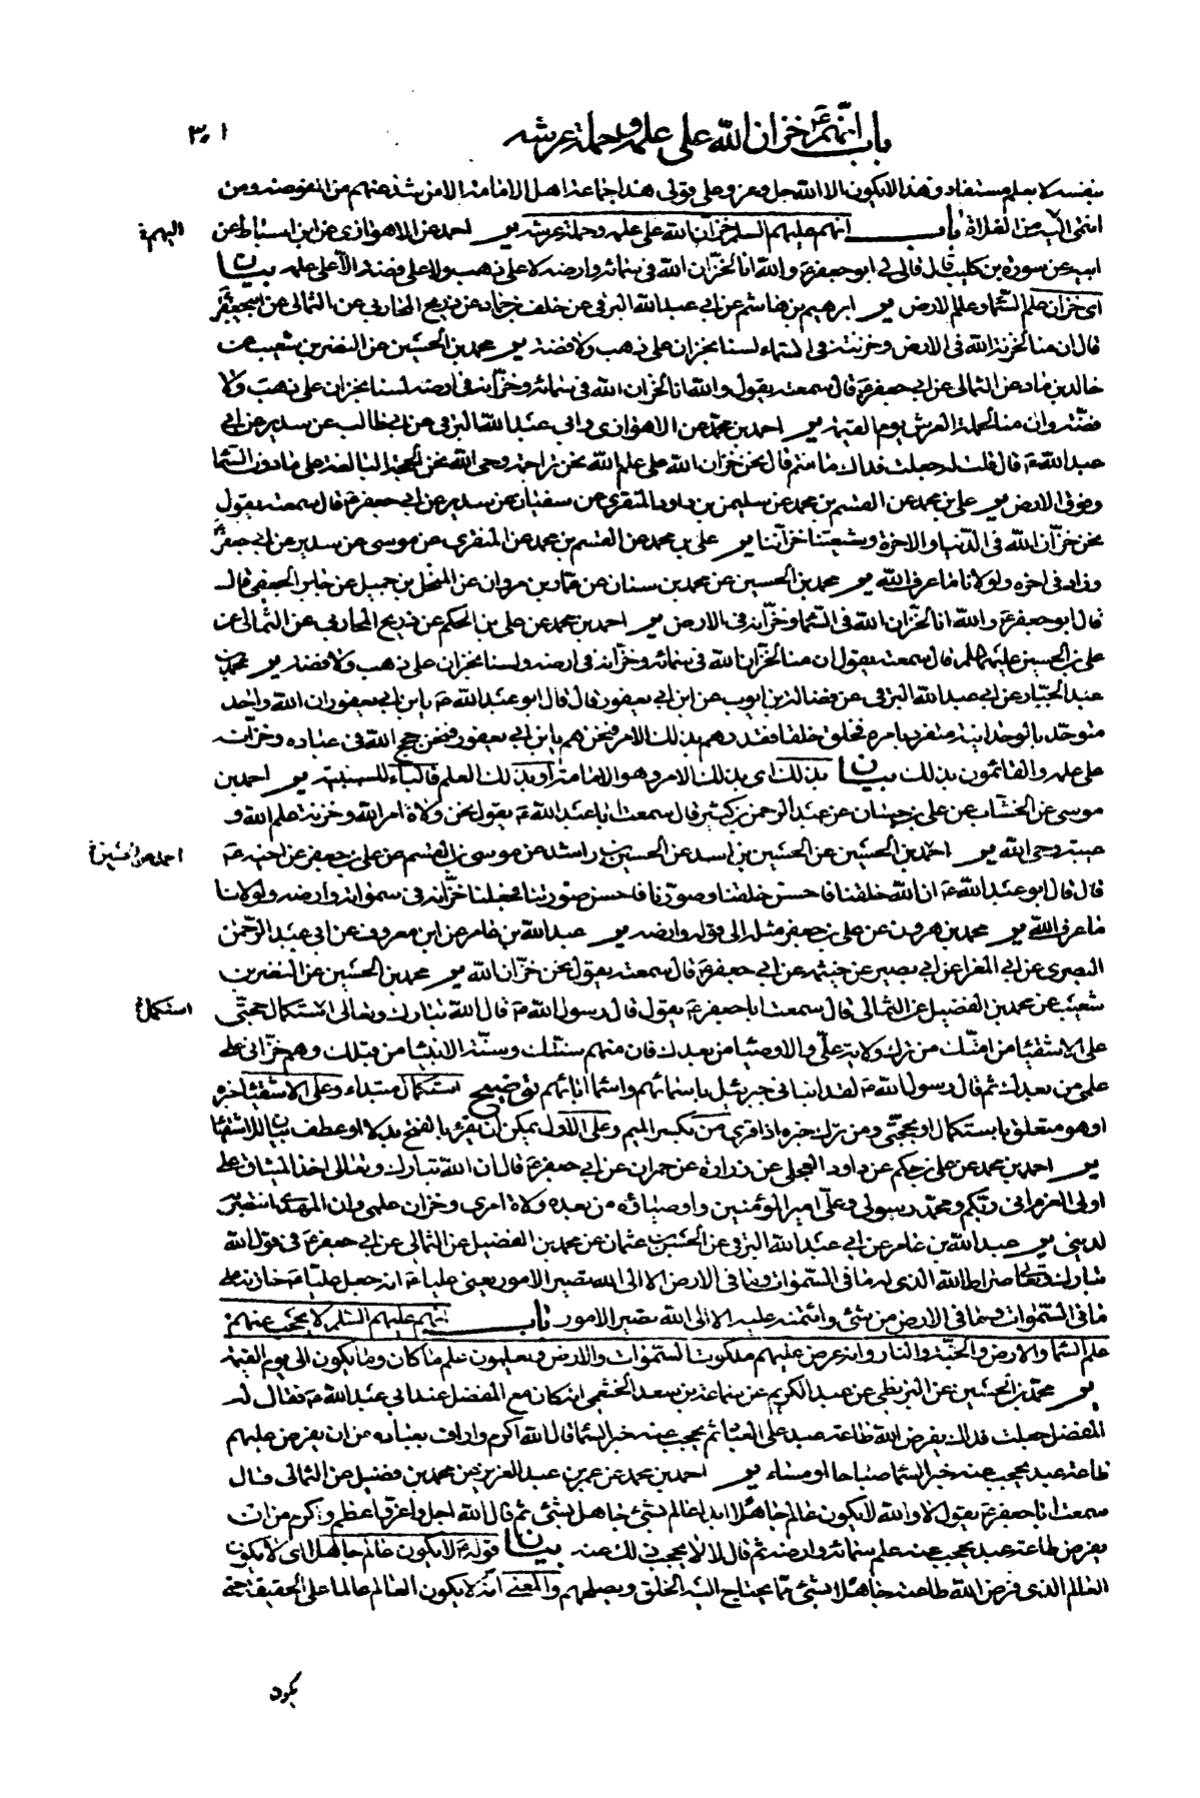 باب انهم ع خزان الله على علمه وحملة عرشه
٣٠١
بنفسه لا بعلم مستفاد وهذا لا يكون الا الله جل وعز وعلى قولي هذا جماعة اهل الامامة الا من شذ عنهم من المفوضة ومن
انتمى اليهم من الغلاة باب انهم عليهم السلم خزان الله على علمه وحملة عرشه ير احمد عن الاهوازى عن ابن اسباط عن
ابيه عن سورة بن كليب قال قال لي ابو جعفر ع والله انا لخزان الله في سمائه وارضه لا على ذهب ولا على فضة الا على علمه بيان
اى خزان علم السماء وعلم الارض ير ابرهيم بن هاشم عن ابي عبد الله البرقي عن خلف بن حماد عن ذريح المحاربي عن الثمالي عن ابي جعفر ع
قال ان منا لخزنة الله في الارض وخزنته في السماء لسنا بخزان على ذهب ولا فضة ير محمد بن الحسين عن النضر بن شعيب عن
خالد بن ماد عن الثمالي عن ابي جعفر ع قال سمعته يقول والله انا لخزان الله في سمائه وخزانه في ارضه لسنا بخزان على ذهب ولا
فضة وان منا لحملة العرش يوم القيمة ير احمد بن محمد عن الاهوازى وابي عبد الله البرقي عن ابي طالب عن سدير عن ابي
عبد الله ع قال قلت له جعلت فداك ما انتم قال نحن خزان الله على علم الله نحن تراجمة وحى الله نحن الحجة البالغة على ما دون السماء
وفوق الارض ير على بن محمد عن القسم بن محمد عن سليمن بن داود المنقري عن سفيان عن سدير عن ابي جعفر ع قال سمعته يقول
نحن خزان الله في الدنيا والاخرة وشيعتنا خزاننا ير على بن محمد عن القسم بن محمد عن المنقري عن موسى عن سدير عن ابي جعفر ع
وزاد في اخره ولولانا ما عرف الله ير محمد بن الحسين عن محمد بن سنان عن عمار بن مروان عن المنخل بن جميل عن جابر الجعفي قال
قال ابو جعفر ع والله انا لخزان الله في السماء وخزانه في الارض ير احمد بن محمد عن على بن الحكم عن ذريح المحاربي عن الثمالي عن
على بن الحسين عليهما السلم قال سمعته يقول ان منا لخزان الله في سمائه وخزانه في ارضه ولسنا بخزان على ذهب ولا فضة ير محمد بن
عبد الجبار عن ابي عبد الله البرقي عن فضالة بن ايوب عن ابن ابي يعفور قال قال ابو عبد الله ع يا بن ابي يعفور ان الله واحد
متوحد بالوحدانية متفرد بامره فخلق خلقا فقدرهم لذلك الامر فنحن هم يا بن ابي يعفور فنحن حجج الله في عباده وخزانه
على علمه والقائمون بذلك بيان بذلك اى بذلك الامر وهو الامامة او بذلك العلم فالباء للسببية ير احمد بن
موسى عن الخشاب عن على بن حسان عن عبد الرحمن بن كثير قال سمعت ابا عبد الله ع يقول نحن ولاة امر الله وخزنة علم الله و
عيبة وحى الله ير احمد بن الحسين عن الحسين بن اسد عن الحسين بن راشد عن موسى بن القسم عن على بن جعفر عن اخيه ع
قال قال ابو عبد الله ع ان الله خلقنا فاحسن خلقنا وصورنا فاحسن صورتنا فجعلنا خزانه في سمواته وارضه ولولانا
ما عرف الله ير محمد بن هرون عن على بن جعفر مثله الى قوله وارضه ير عبد الله بن عامر عن ابن معروف عن ابي عبد الرحمن
البصري عن ابي المغرا عن ابي بصير عن خيثمة عن ابي جعفر ع قال سمعته يقول نحن خزان الله ير محمد بن الحسين عن النضر بن
شعيب عن محمد بن الفضيل عن الثمالي قال سمعت ابا جعفر ع يقول قال رسول الله ص قال الله تبارك وتعالى استكمال حجتي
على الاشقياء من امتك من ترك ولاية علي والاوصياء من بعدك فان منهم سنتك وسنة الانبياء من قبلك وهم خزاني على
علمي من بعدك ثم قال رسول الله ص لقد انباني جبرئيل باسمائهم واسماء ابائهم توضيح استكمال مبتداء وعلى الاشقياء خبره
او هو متعلق باستكمال او بحجتي ومن ترك خبره اذا قرئ من بكسر الميم وعلى الاول يمكن ان يقرء بالفتح بدلا او عطف بيان للاشقياء
ير احمد بن محمد عن على بن حكم عن داود العجلي عن زرارة عن حمران عن ابي جعفر ع قال ان الله تبارك وتعالى اخذ الميثاق على
اولى العزم اني ربكم ومحمد رسولي وعلي امير المؤمنين واوصياؤه من بعده ولاة امري وخزان علمي وان المهدي انتصر به
لديني ير عبد الله بن عامر عن ابي عبد الله البرقي عن الحسين بن عثمان عن محمد بن الفضيل عن الثمالي عن ابي جعفر ع في قول الله
تبارك وتعالى صراط الله الذي له ما في السموات وما في الارض الا الى الله تصير الامور يعني عليا ع انه جعل عليا ع خازنه على
ما في السموات وما في الارض من شئ وائتمنه عليه الا الى الله تصير الامور باب انهم عليهم السلم لا يحجب عنهم
علم السماء والارض والجنة والنار وانه عرض عليهم ملكوت السموات والارض ويعلمون علم ما كان وما يكون الى يوم القيمة
ير محمد بن الحسين عن البزنطي عن عبد الكريم عن سماعة بن سعد الخثعمي انه كان مع المفضل عند ابي عبد الله ع فقال له
المفضل جعلت فداك يفرض الله طاعة عبد على العباد ثم يحجب عنه خبر السماء قال الله اكرم واراف بعباده من ان يفرض عليهم
طاعة عبد يحجب عنه خبر السماء صباحا او مساء ير احمد بن محمد عن عمر بن عبد العزيز عن محمد بن فضيل عن الثمالي قال
سمعت ابا جعفر ع يقول لا والله لا يكون عالم جاهلا ابدا عالم بشئ جاهل بشئ ثم قال الله اجل واعز واعظم واكرم من ان
يفرض طاعة عبد يحجب عنه علم سمائه وارضه ثم قال لا لا يحجب ذلك عنه بيان قوله ع لا يكون عالم جاهلا اى لا يكون
العالم الذي فرض الله طاعته جاهلا بشئ مما يحتاج اليه الخلق ويصلحهم والمعنى انه لا يكون العالم عالما على الحقيقة حتى
يكون